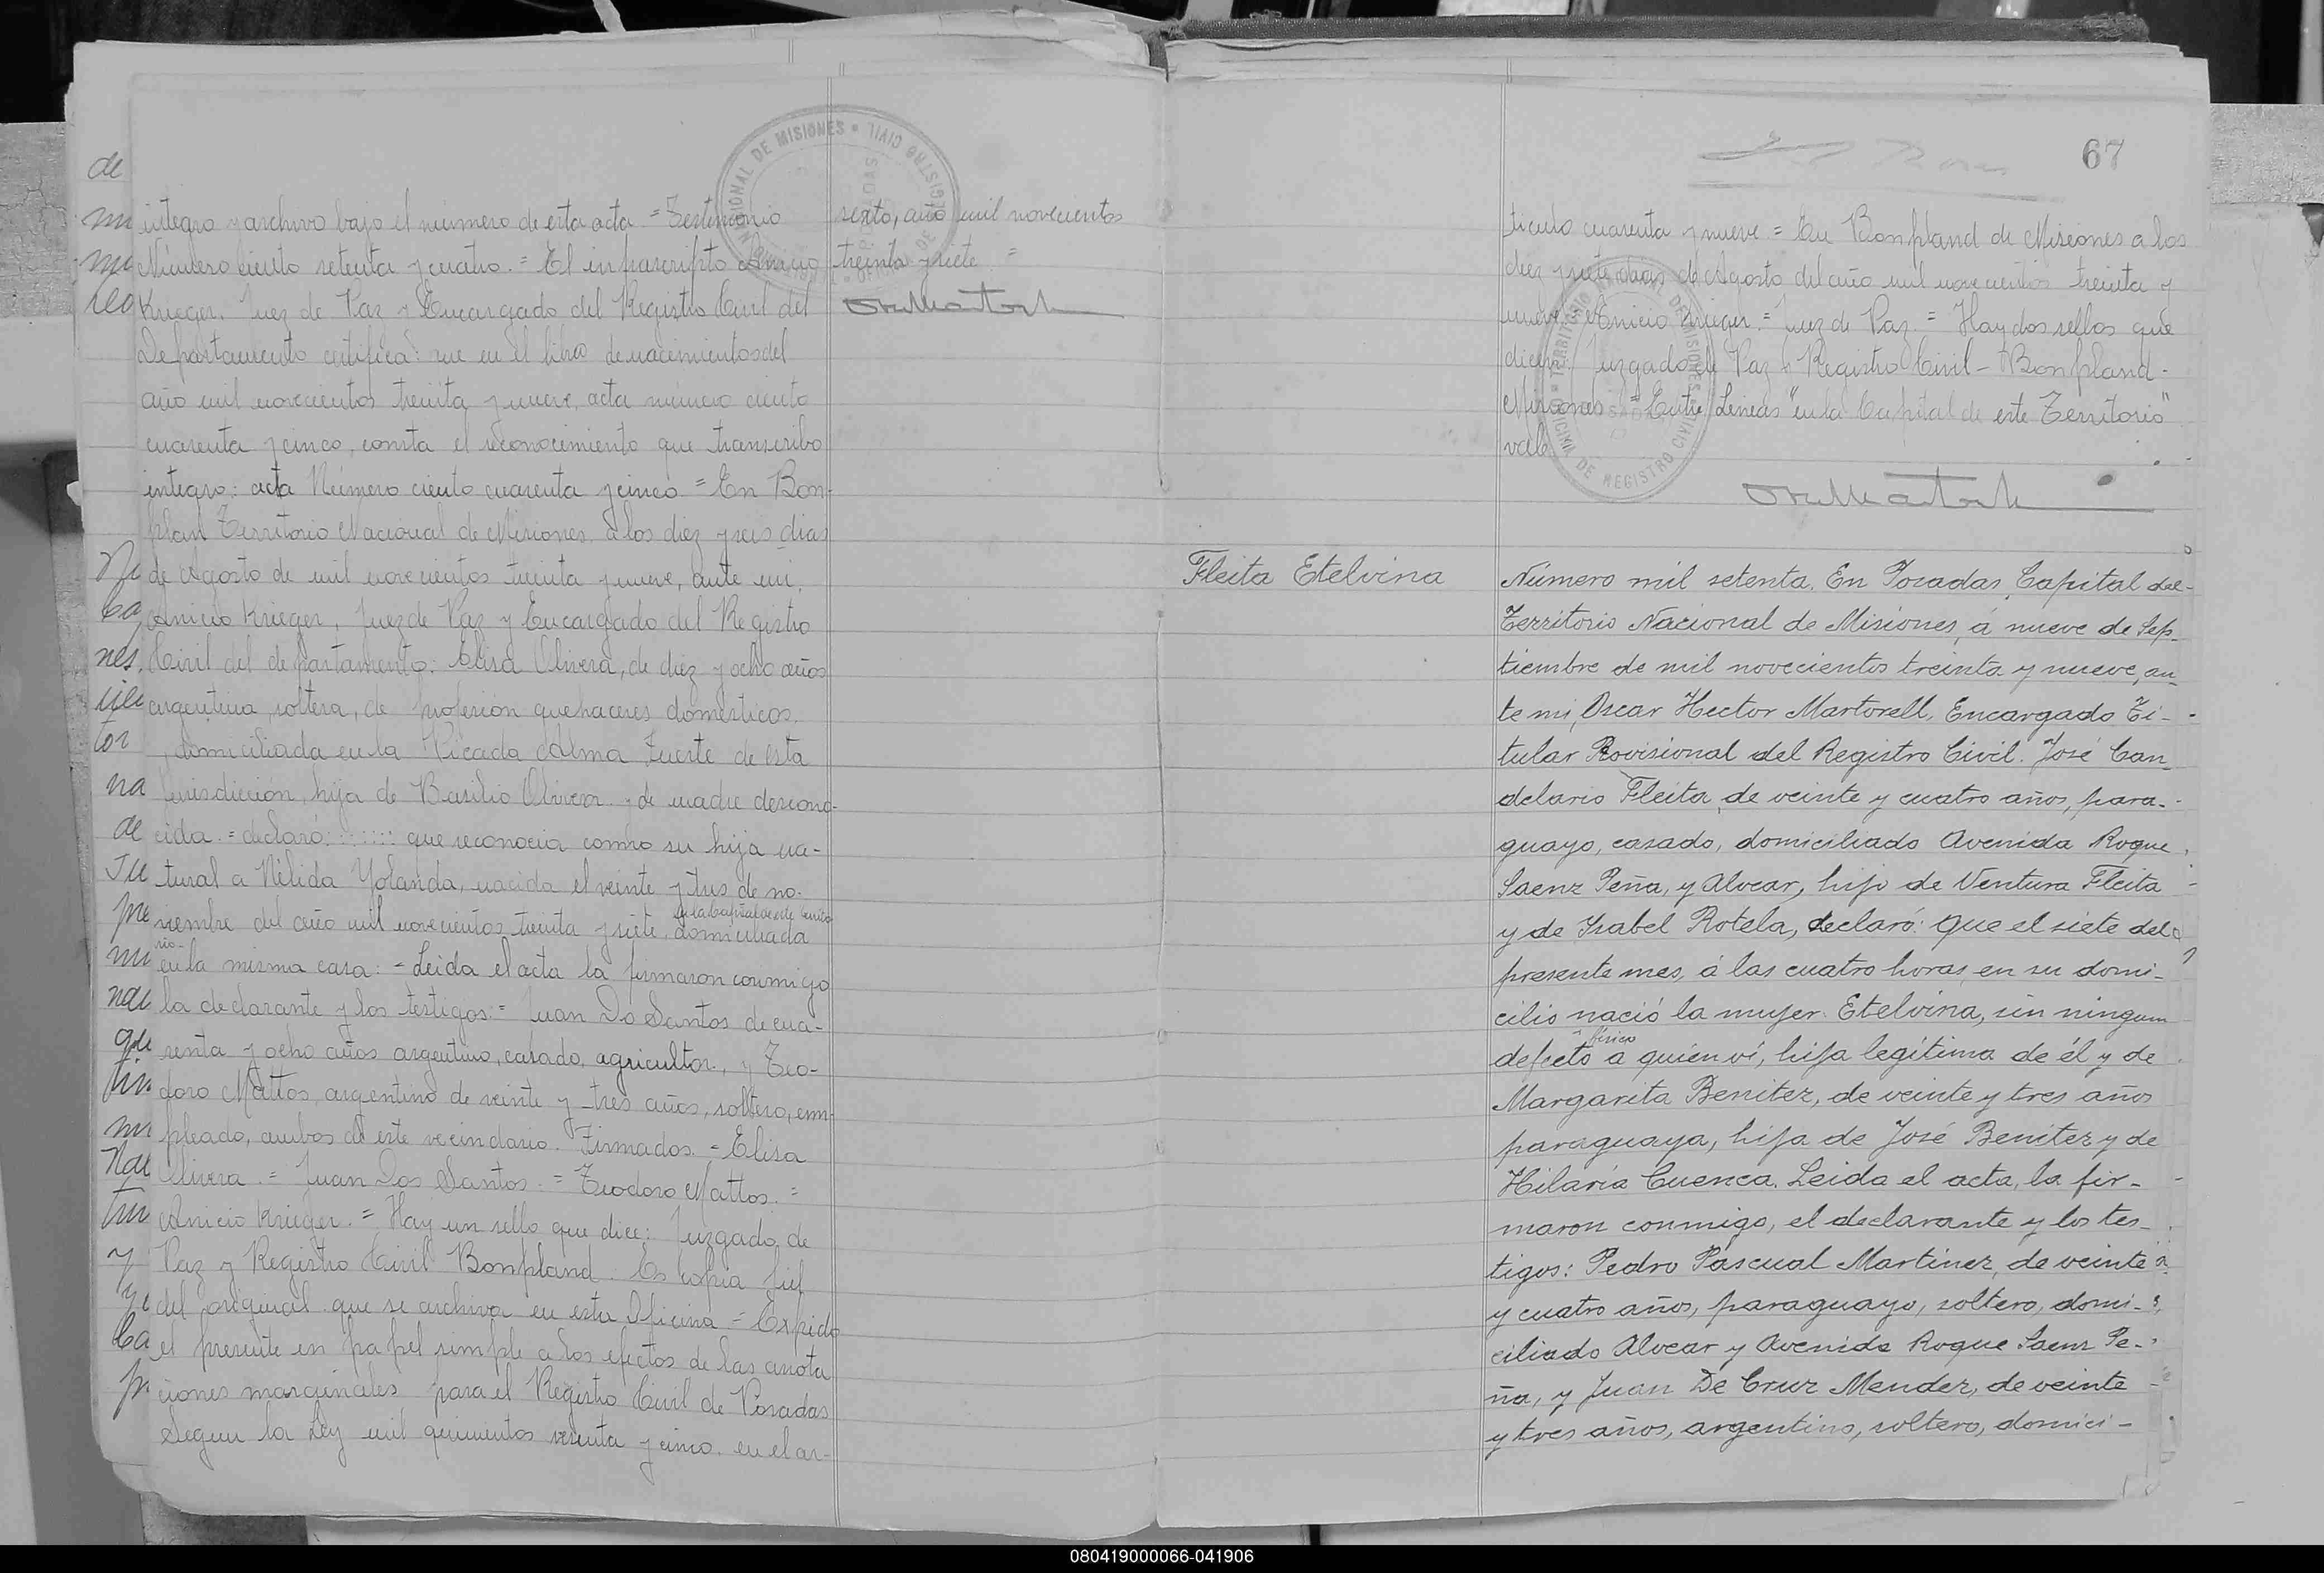 integro y archivo bajo el número de esta acta = Testimonio
Número ciento setenta y cuatro. = El infrascripto Anicio
Krieger, Juez de Paz y Encargado del Registro Civil del
Departamento certifica: que en el libro de nacimientos del
año mil novecientos treinta y nueve, acta número ciento
cuarenta y cinco, consta el reconocimiento que transcribo
integro: acta Número ciento cuarenta y cinco = En Bon-
plan Territorio Nacional de Misiones, a los diez y seis dias
de Agosto de mil novecientos treinta y nueve, ante mi,
Anicio Krieger, Juez de Paz y Encargado del Registro
Civil del departamento: Elisa Olivera, de diez y ocho años
argentina, soltera, de profesión quehaceres domésticos.
domiciliada en la Picada Alma Fuerte de esta
jurisdicción, hija de Basilio Olivera y de madre descono-
cida = declaró: que reconocia como su hija na-
tural a Nélida Yolanda, nacida el veinte y tres de no-
viembre del año mil novecientos treinta y siete, en la Capital de este territo
rio- domiciliada
en la misma casa: = Leida el acta la firmaron conmigo
la declarante y los testigos: = Juan Do Santos de cua-
renta y ocho años argentino, casado, agricultor, y Teo-
doro Mattos, argentino de veinte y tres años, soltero, em-
pleado, ambos de este vecindario. Firmados. = Elisa
Olivera. = Juan Dos Santos. = Teodoro Mattos. =
Anicio Krieger. = Hay un sello que dice: Juzgado de
Paz y Registro Civil Bonpland. Es copia fiel
del original que se archiva en esta Oficina - Expido
el presente en papel simple a los efectos de las anota
ciones marginales, para el Registro Civil de Posadas
Segun la Ley mil quinientos sesenta y cinco. en el ar-
sexto, año mil novecientos
treinta y siete =
67
ticulo cuarenta y nueve. = En Bonpland de Misiones a los
diez y siete dias de Agosto del año mil novecientos treinta y
nueve. Anicio Krieger. = Juez de Paz. = Hay dos sellos que
dicen: Juzgado de Paz y Registro Civil - Bonpland-
Misiones = Entre Lineas "en la Capital de este Territorio"
vale.
Fleita Etelvina
Número mil setenta. En Posadas, Capital del
Territorio Nacional de Misiones, á nueve de Sep-
tiembre de mil novecientos treinta y nueve, an-
te mi, Oscar Hector Martorell, Encargado Ti-
tular Provisional del Registro Civil. José Can-
delario Fleita, de veinte y cuatro años, para-
guayo, casado, domiciliado Avenida Roque
Saenz Peña, y Alvear, hijo de Ventura Fleita
y de Isabel Rotela, declaró: que el siete del
presente mes, á las cuatro horas, en su domi-
cilio nació la mujer: Etelvina, sin ningun
defecto fisico á quien ví, hija legítima de él y de
Margarita Benitez, de veinte y tres años
paraguaya, hija de José Benitez y de
Hilaria Cuenca. Leida el acta, la fir-
maron conmigo, el declarante y los tes-
tigos: Pedro Pascual Martinez, de veinte
y cuatro años, paraguayo, soltero, domi-
ciliado Alvear y Avenida Roque Saenz Pe-
ña, y Juan De Cruz Mendez, de veinte
y tres años, argentino, soltero, domici-
080419000066-041906